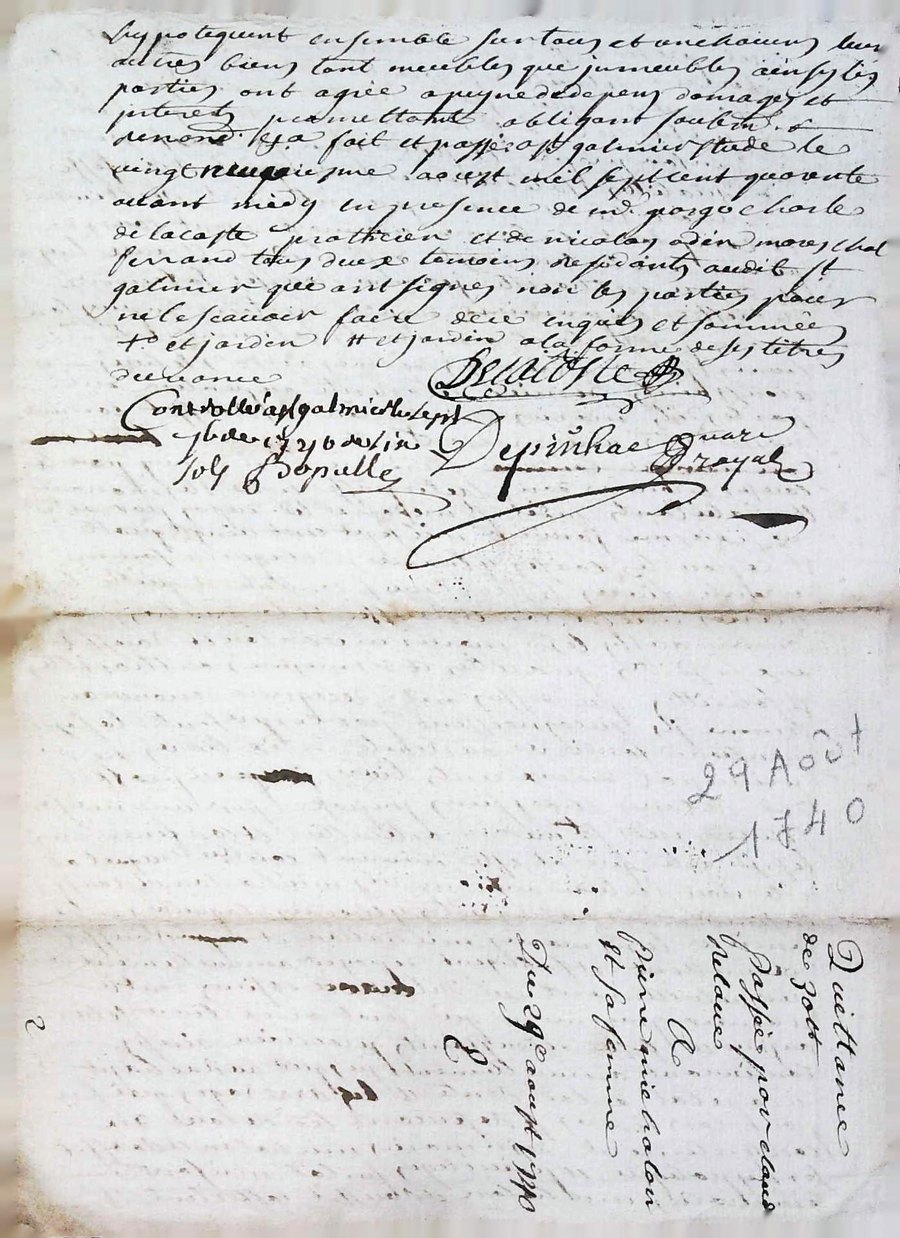 hypotequent ensemble sur tous et un chacuns leurs
autres biens tant meubles que jmmeubles ainsy les
parties ont agréé a peyne de depens domages et
jnterets promettant obligant soubm. &
renond. &a fait et passé a st galmier etude le
vingt neuviesme aoust mil sept cent quarente
avant midy en presence de mr. charle
delacoste praticien et de nicolas odin mareschal
ferrand tous deux temoins residants audit st
galmier qui ont signes non les parties pour
ne le scavoir faire de ce enquis et sommées
et jardin # et jardin a la forme de ses titres

Delacoste
Controllé a st galmier le sept
7bre 1740
sols
Depinhac
royal
29 Août
1740
Quittance
de 30ll
Passée par claud
A
pierre michalon
et sa femme
Du 29e aoust 1740
2